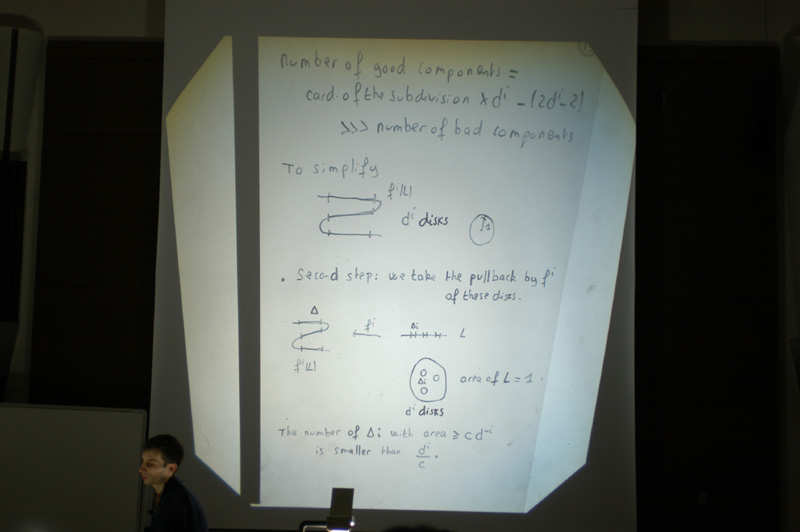 number of good components =
card. of the subdivision × dⁱ - (2dⁱ-2)
>>> number of bad components
To simplify
fⁱ(L)
dⁱ disks
1
. Second step: we take the pullback by fⁱ
of these disks.
Δ
fⁱ
Δi
L
fⁱ(L)
Δi
area of L = 1.
dⁱ disks
The number of Δi with area ≥ c d⁻ⁱ
is smaller than dⁱ/c.